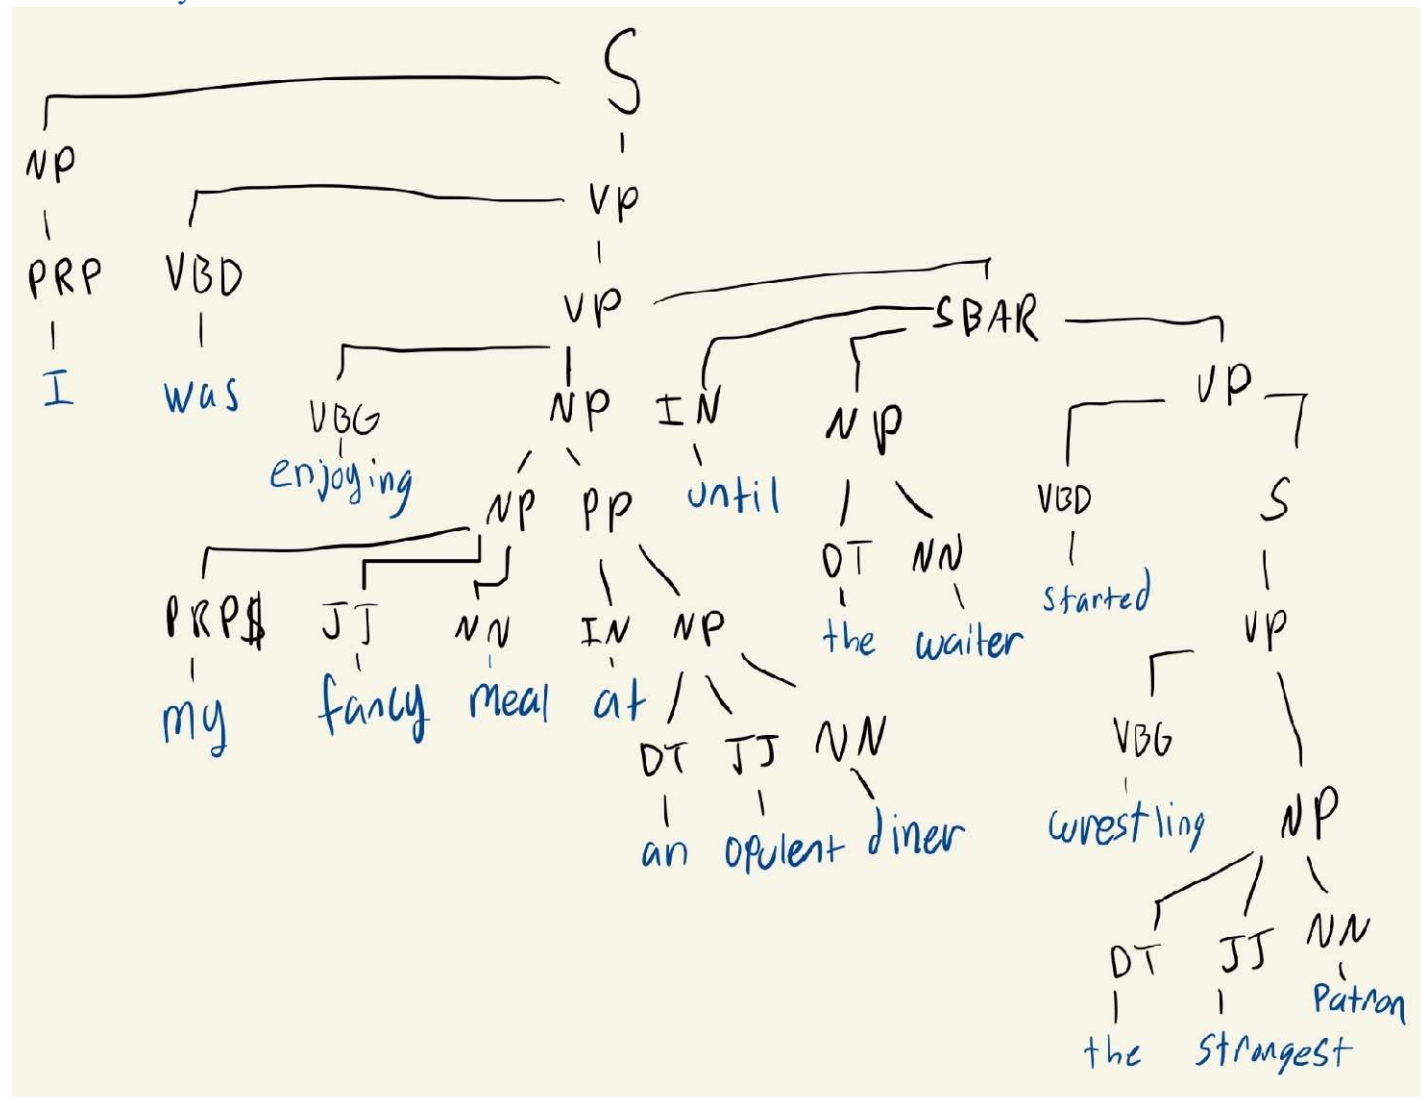 S
NP
VP
PRP VBD
VP SBAR
I was
VBG NP IN NP VP
enjoying
NP PP until VBD S
DT NN
PRP$ JJ NN IN NP the waiter started VP
my fancy meal at
DT JJ NN VBG
an opulent diner wrestling NP
DT JJ NN
the strongest Patron